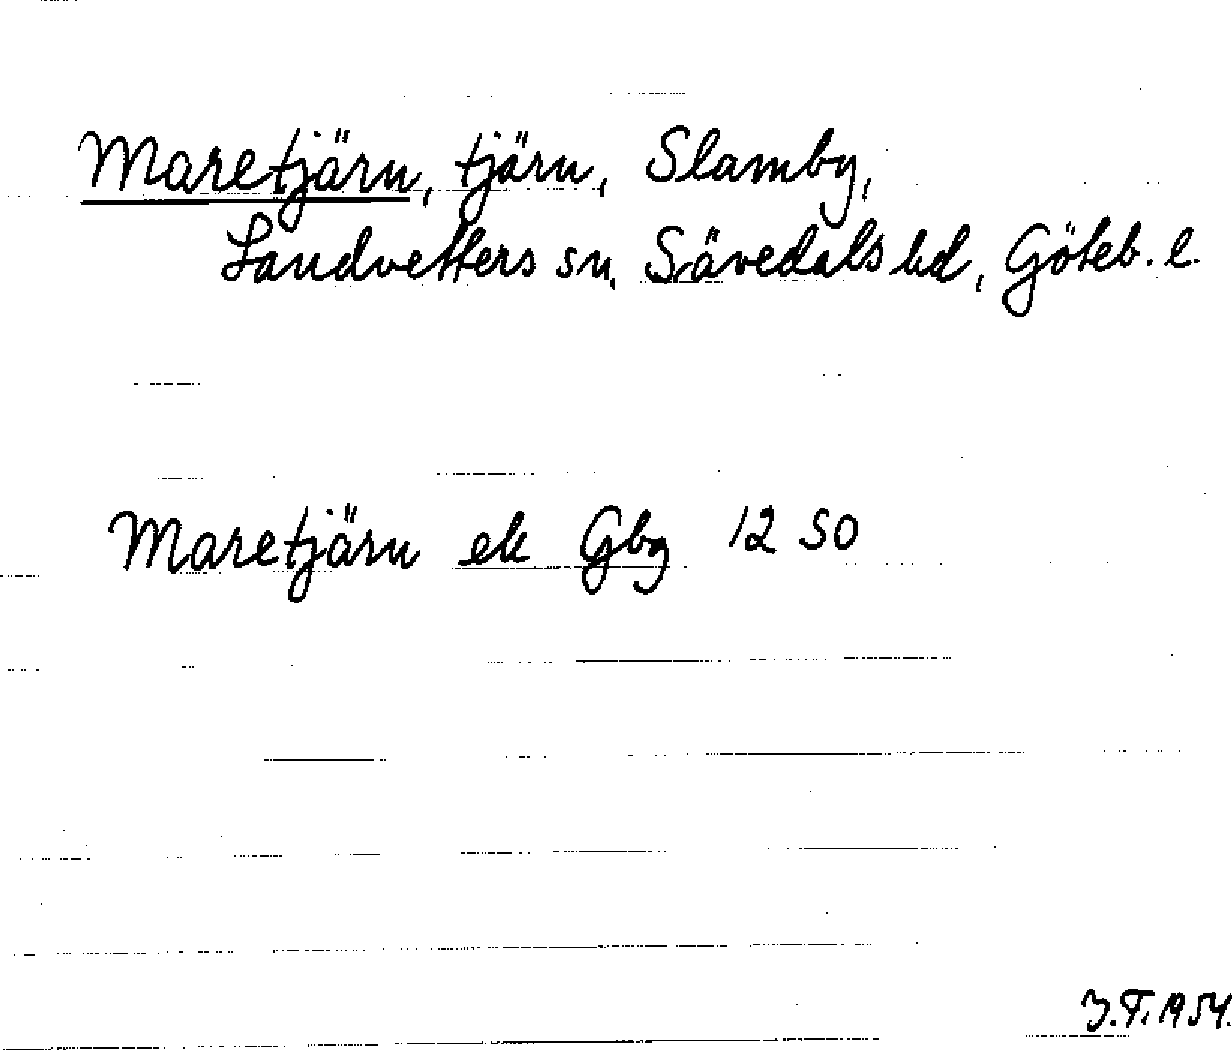 Maretjärn, tjärn, Slamby,
Landvetters sn, Sävedals hd, Göteb. l.
Maretjärn ek Gbg 12 SO
J.T. 1954.